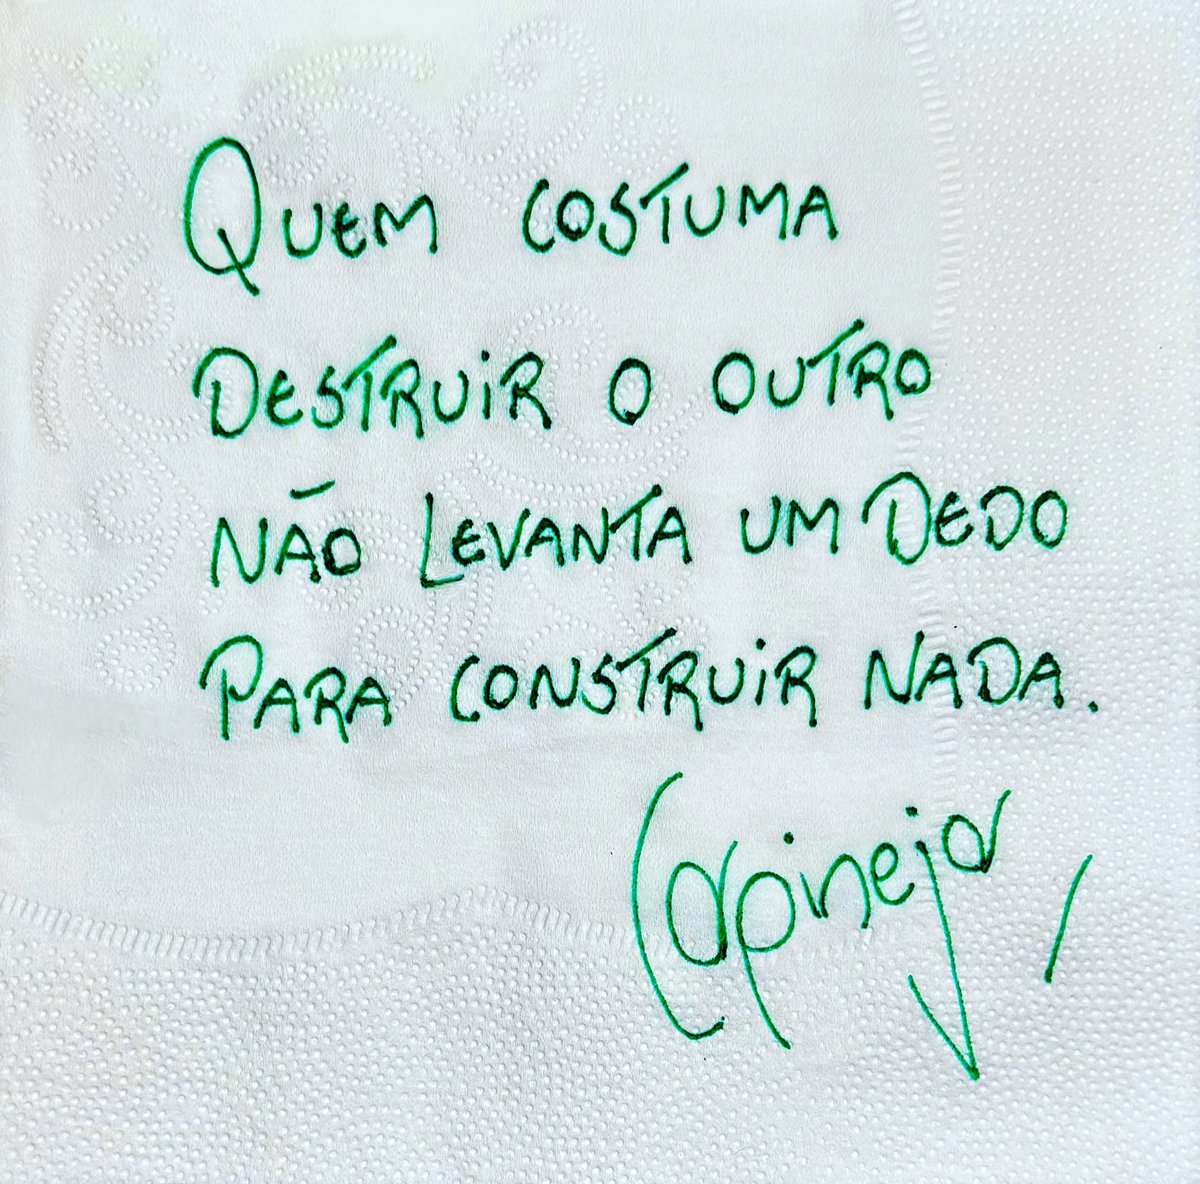 QUEM COSTUMA
DESTRUIR O OUTRO
NÃO LEVANTA UM DEDO
PARA CONSTRUIR NADA.
Carpinejar